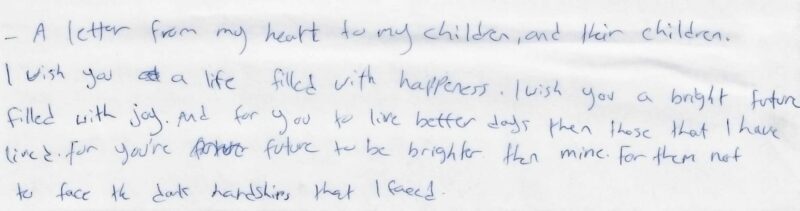 - A letter from my heart to my children, and their children.
I wish you a life filled with happeness. I wish you a bright future
filled with joy. And for you to live better days then those that I have
lived. for you're future to be brighter then mine. For them not
to face the dark hardships that I faced.